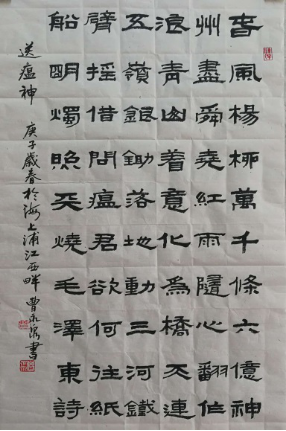 春風楊柳萬千條六億神
州盡舜堯紅雨隨心翻作
浪青山着意化為橋天連
五嶺銀鋤落地動三河鐵
臂搖借問瘟君欲何往紙
船明燭照天燒毛澤東詩
送瘟神 庚子歲春於海上浦江西畔 曹永書